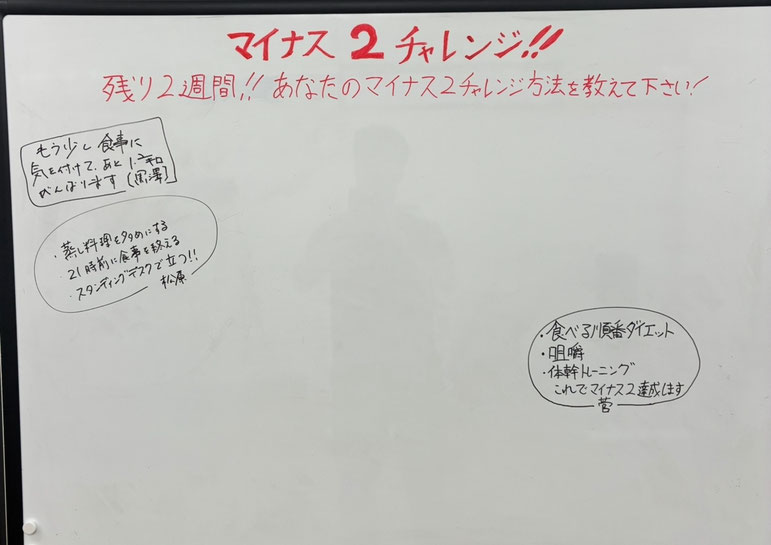 マイナス2チャレンジ!!
残り2週間!! あなたのマイナス2チャレンジ方法を教えて下さい!
もう少し食事に
気を付けて、あと1.2キロ
がんばります [黒澤]
・蒸し料理を多めにする
・21時前に食事を終える
・スタンディングデスクで立つ!!
松原
・食べる順番ダイエット
・咀嚼
・体幹トレーニング
これでマイナス2達成します
菅